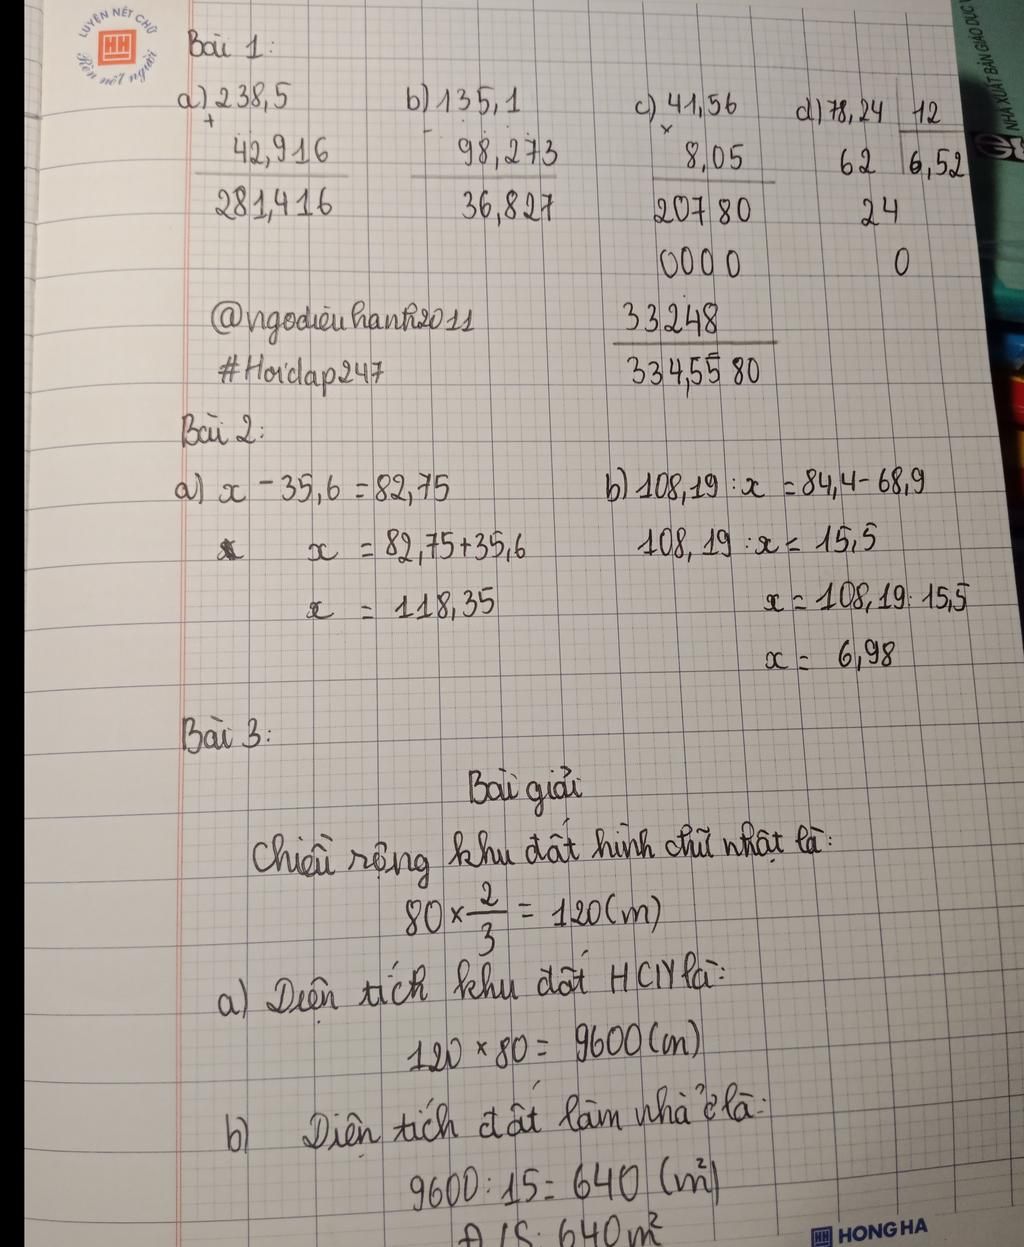 LUYỆN NÉT CHỮ
HH
Rèn nết người
NHÀ XUẤT BẢN GIÁO DỤC V
Bài 1:
a) 238,5
+
42,916
281,416
b) 135,1
-
98,273
36,827
c) 41,56
x
8,05
20780
0000
33248
334,5580
d) 78,24 12
62 6,52
24
0
@ngodieuhanh2011
#Hoidap247
Bài 2:
a) x - 35,6 = 82,75
x = 82,75+35,6
x = 118,35
b) 108,19 : x = 84,4 - 68,9
108,19 : x = 15,5
x = 108,19 : 15,5
x = 6,98
Bài 3:
Bài giải
Chiều rộng khu đất hình chữ nhật là:
80 × 2/3 = 120 (m)
a) Diện tích khu đất HCN là:
120 × 80 = 9600 (m)
b) Diện tích đất làm nhà là:
9600 : 15 = 640 (m²)
640m²
HH HONG HA